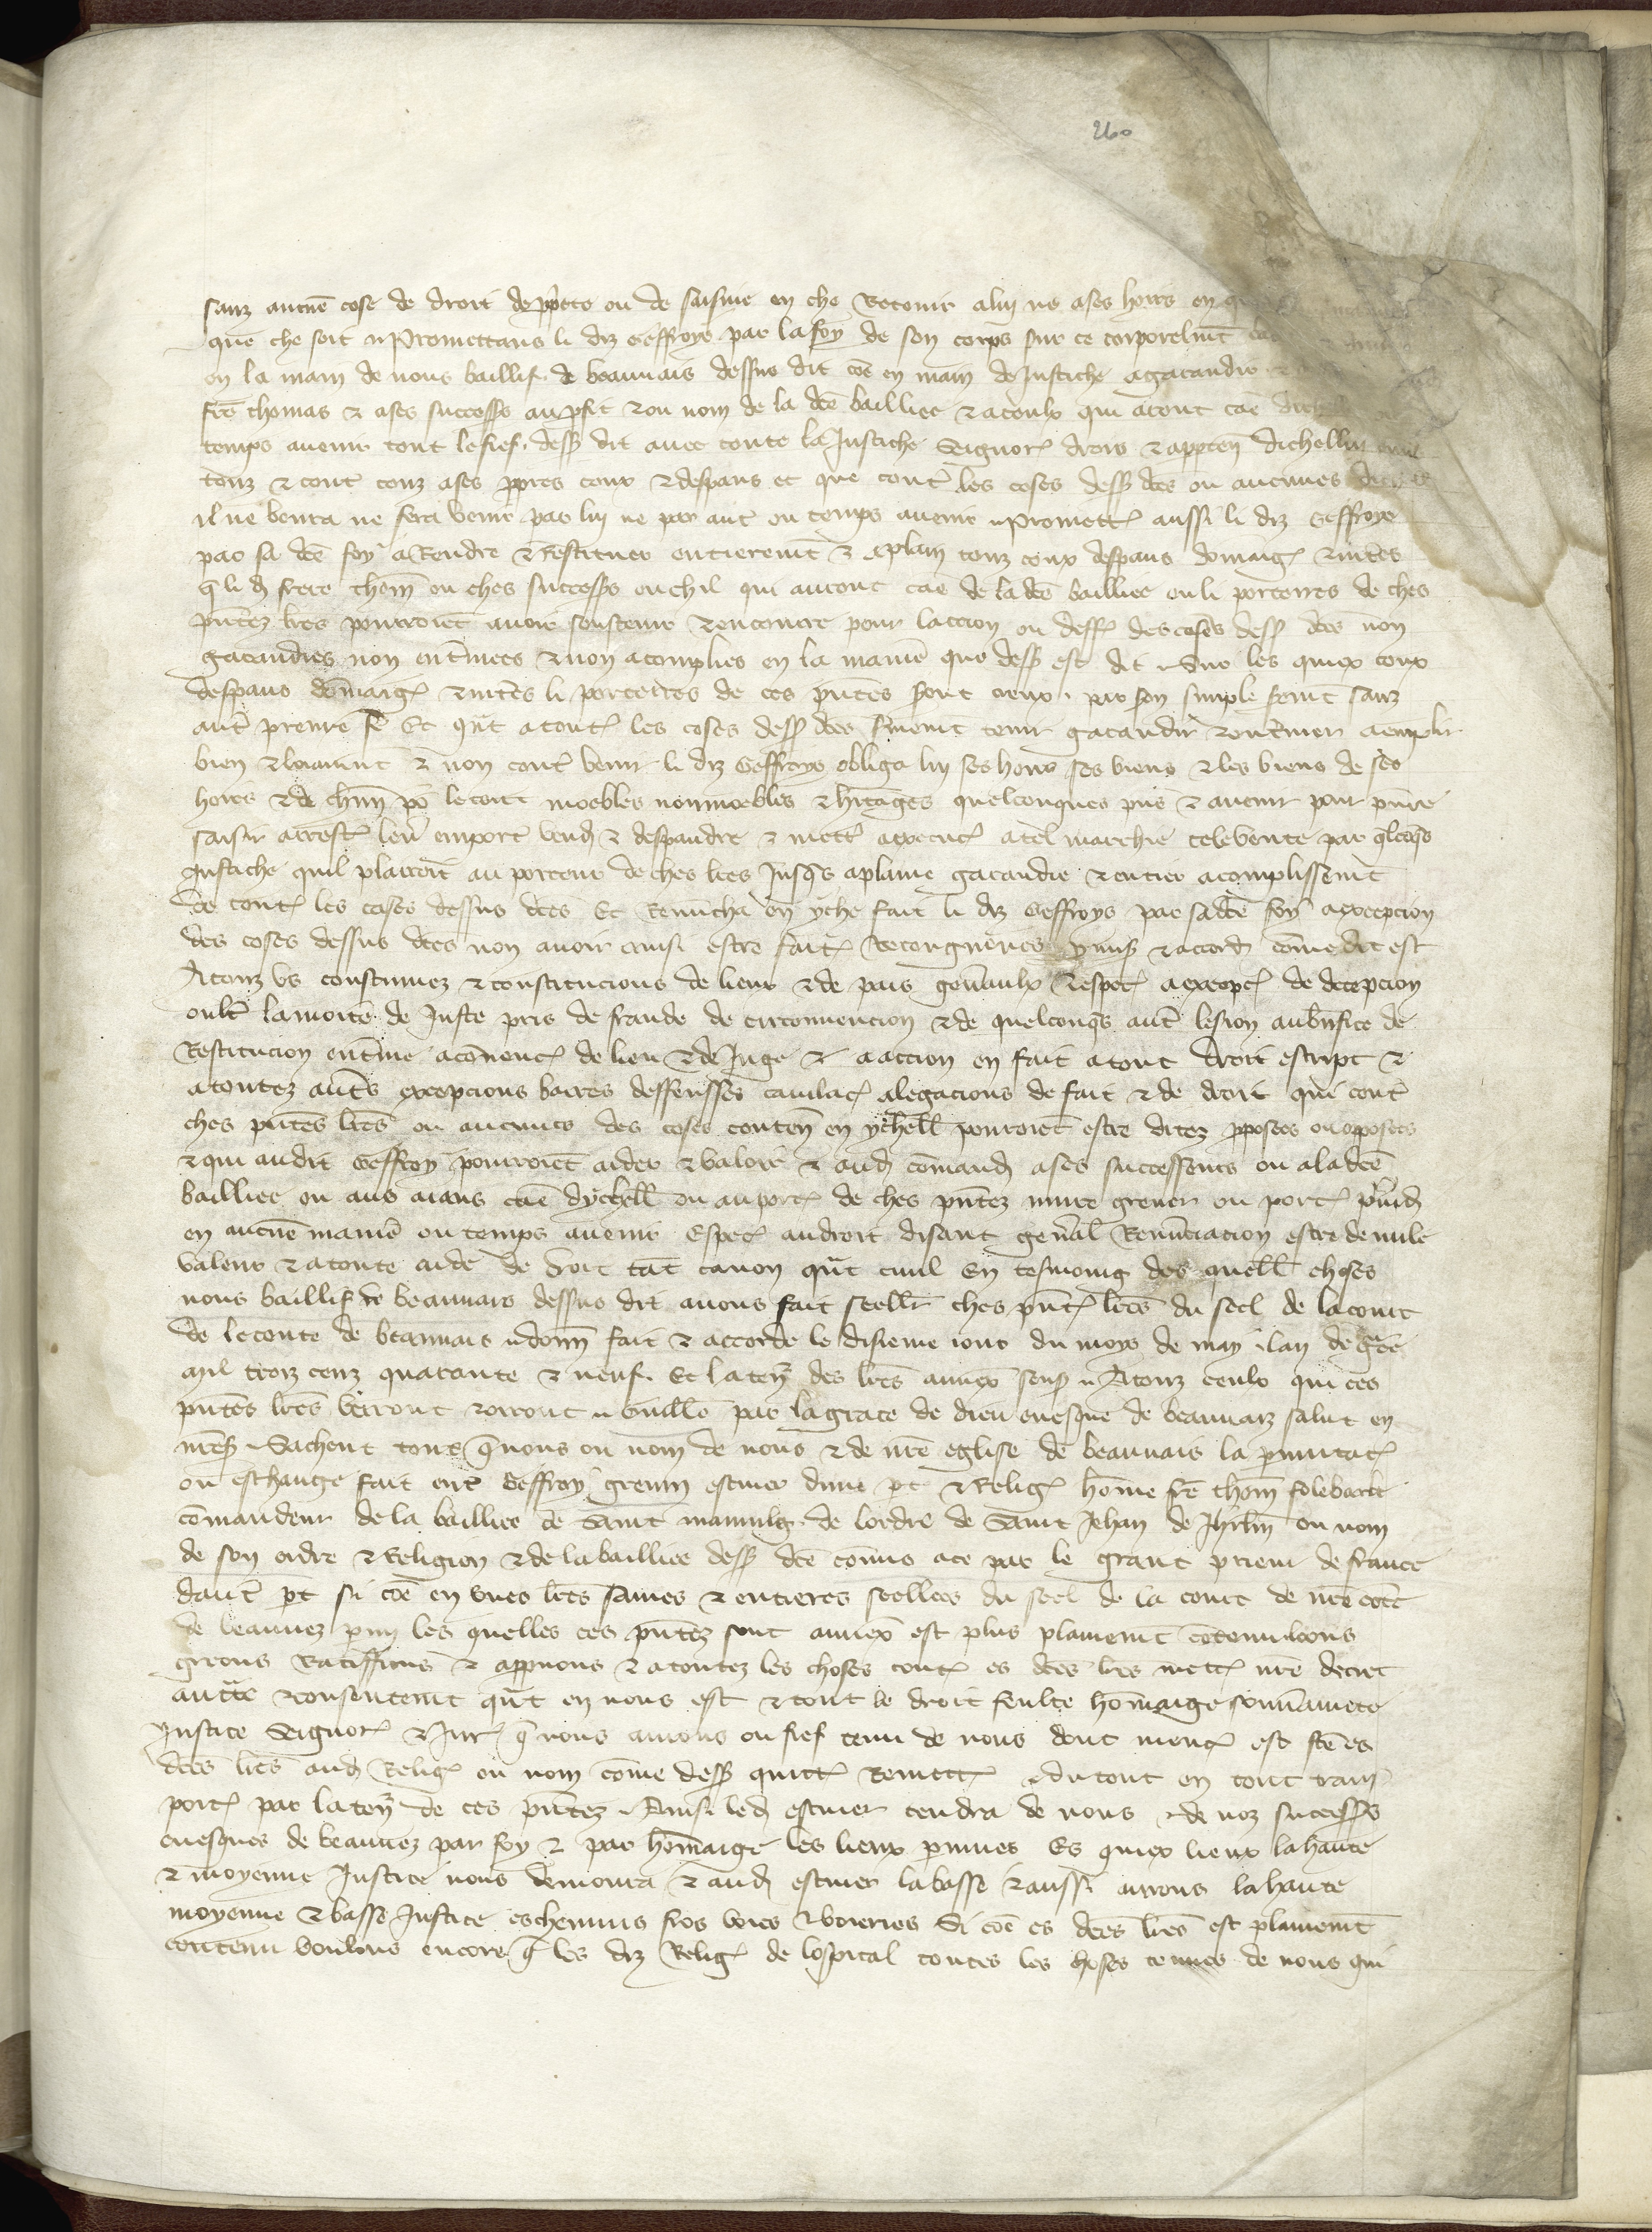 260
sanz aucune cose de droit de pprete ou de saisine en che Retenir a luy ne a ses hoirs en
que che soit Promettans li diz Geffroys par la foy de son corps sur ce corporelmt
en la main de nous baillif de beauvais dessus dit coe en main de Justiche a garandir
fre thomas & a ses success au pfit & ou nom de la dce baillier & a ceulx qui aront cae
temps avenir tout le fief dess dit avec toute la Justiche Signor drois & apptenn dichelluy
touz & cont touz a ses ppres coux & despans et que cont les coses dess dces ou aucunes
il ne venra ne fera venir par luy ne par aut ou temps avenir Promett aussi li diz Geffroys
par sa dce foy a Rendre & Restituer entieremt & a plain touz coux despans domaig & intes
q li d frere thom ou ches success ou chil qui auront cae de la dce baillier ou li porterres de ches
pntez lres pourroiet avoir soustenir & encourre pour laccion ou deff des coses dess dces non
garandies non entinees & non acomplies en la manie que dess est dit Sur les quiex coux
despans domaig & intes li porterres de ces pntes seront creux par son simple sermt sanz
aut preuve fe Et qut a tout les coses dess dces fmemt tenir garandir & entiner aemplir
bien & loiaumt & non cont venir li diz Geffroys obliga luy ses hoirs ses biens & les biens de ses
hoirs & de chun po le tout moebles nonmoebles & hitages quelconques pns & avenir pour pnre
saisir arrest lev emport vend & despandre & mett a execuc a tel marchie tele vente par qlcoqs
Justiche quil plairoit au porteur de ches lres Jusqs a plaine garandie & entier acomplissemt
de tout les coses dessus dces Et Renuncha en yche fait li diz Geffroys par sa dce foy a excepcion
des coses dessus dces non avoir ainsi estre fait Recongneues pmis & accord come dit est
A touz us coustumez & constitucions de lieux & de pais genaulx & espec a excepc de decepcion
oult la moitie de Juste pris de fraude de circonvencion & de quelconqs aut lesion au bnfice de
Restitucion entine a convenc de lieu & de Juge & a accion en fait a tout droit escript &
a toutez auts excepcions barres deffensses cavilac alegacions de fait & de droit qui cont
ches pntes lres ou aucunes des coses conten en ychell pourroiet estre ditez pposees ou opposees
& qui audit Geffroy pourroiet aider & valoir & aud comand a ses successeurs ou a la dce
baillier ou aus aians cae dychell ou au port de ches pntez nuire grever ou port piud
en aucune manie ou temps avenir Espec au droit disant genal Renunciacion estre de nule
valeur & a toute aide de droit tat canon qut civil En tesmoing des quell choses
nous baillif de beauvais dessus dit avons fait seeller ches pnt lres du seel de la court
de le conte de beauvais donn fait & accorde le disieme iour du moys de may lan de gre
mil troiz cenz quarante & neuf Et la ten des lres annex sens A touz ceulx qui ces
pntes lres verront & orront Guille par la grace de dieu evesque de beauvaiz salut en
nres Sachent tous q nous ou nom de nous & de nre eglise de beauvais la pmutac
ou eschange fait ent Geffroy grenin escuier dune pt & Relig home fre thom folebarbe
comandeur de la baillier de Saint mauulg de lordre de Saint Jehan de Jhrlm ou nom
de son ordre & Religion & de la baillier dess dce comis a ce par le grant prieur de france
daut pt si coe en unes lres saines & entieres seellees du seel de la court de nre cote
de beauvez pmy les quelles ces pntez sont annex est plus plainemt cotenu loons
greons Ratiffions & appuons & a toutez les choses cont es dces lres mett nre decret
autte & consentemt qut en nous est & tout le droit feulte homaige souvainete
Justice Signor & Jur q nous avions ou fief tenu de nous dont menc est fce es
dces lres aud Relig ou nom come dess quitt Remett & du tout en tout trans
port par la ten de ces pntez Ainsi led escuier tendra de nous & de noz success
evesques de beauvez par foy & par homaige les lieux pmues Es quiex lieux la haute
& moyenne Justice nous demoura & aud escuier la basse & aussi aurons la haute
moyenne & basse Justice es chemins fros voies & voieries Si coe es dces lres est plainemt
contenu voulons encore q les diz Relig de lospital toutes les choses tenues de nous qui